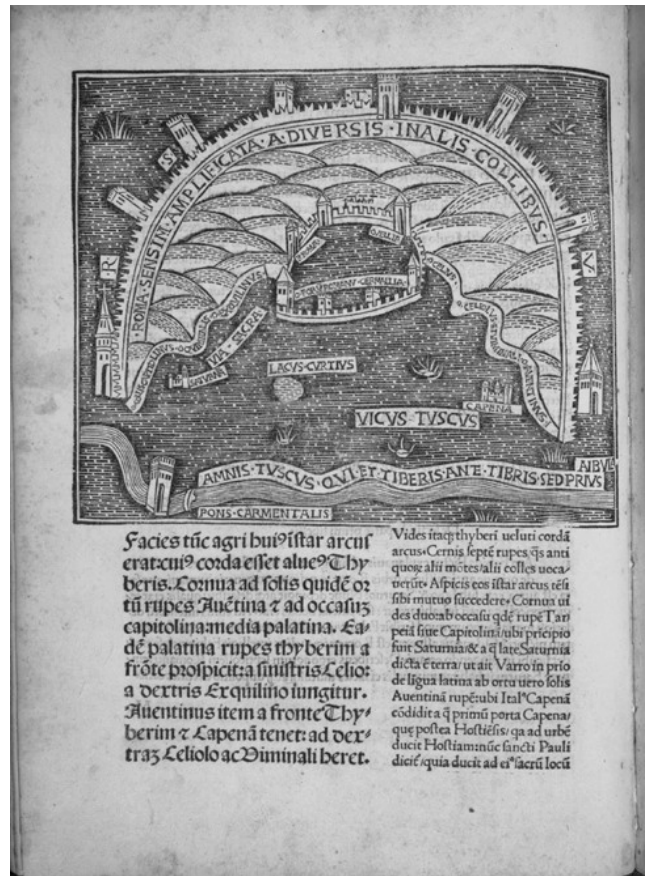 ROMA · SENSIM · AMPLIFICATA · A · DIVERSIS · INALIS · COLLIBVS ·
S
R
V
VIA · SACRA
SATVRNIA
LACVS · CVRTIVS
VICVS · TVSCVS
CAPENA
AMNIS · TVSCVS · QVI · ET · TIBERIS · ANTE · TIBRIS · SED PRIVS
ALBVLA
PONS · CARMENTALIS
Facies tūc agri huiꝰ īstar arcus
erat:cuiꝰ corda esset alueꝰ Thy
beris. Cornua ad solis quidē or
tū rupes Auētina ⁊ ad occasuꝫ
capitolina:media palatina. Ea-
dē palatina rupes thyberim a
frōte prospicit:a sinistris Celio:
a dextris Exquilino iungitur.
Auentinus item a fronte Thy-
berim ⁊ Capenā tenet: ad dex-
traꝫ Celiolo ac Viminali heret.
Vides itaqꝫ thyberī ueluti cordā
arcus. Cernis septē rupes, qs anti
quiores alii mōtes/alii colles uoca
uerūt. Aspicis eos īstar arcus tēsi
sibi mutuo succedere. Cornua ui
des duo:ab occasu qdē rupē Tar
peiā siue Capitolinā/ubi pricipio
fuit Saturnia/& a q̄ late Saturnia
dicta ē terra/ut ait Varro in prio
de līgua latina ab ortu uero solis
Auentinā rupē:ubi Italꝰ Capenā
cōdidit a q̄ primū porta Capena/
que postea Hostiēsis/qa ad urbē
ducit Hostiam:nūc sancti Pauli
dicit/quia ducit ad eiꝰ sacrū locū